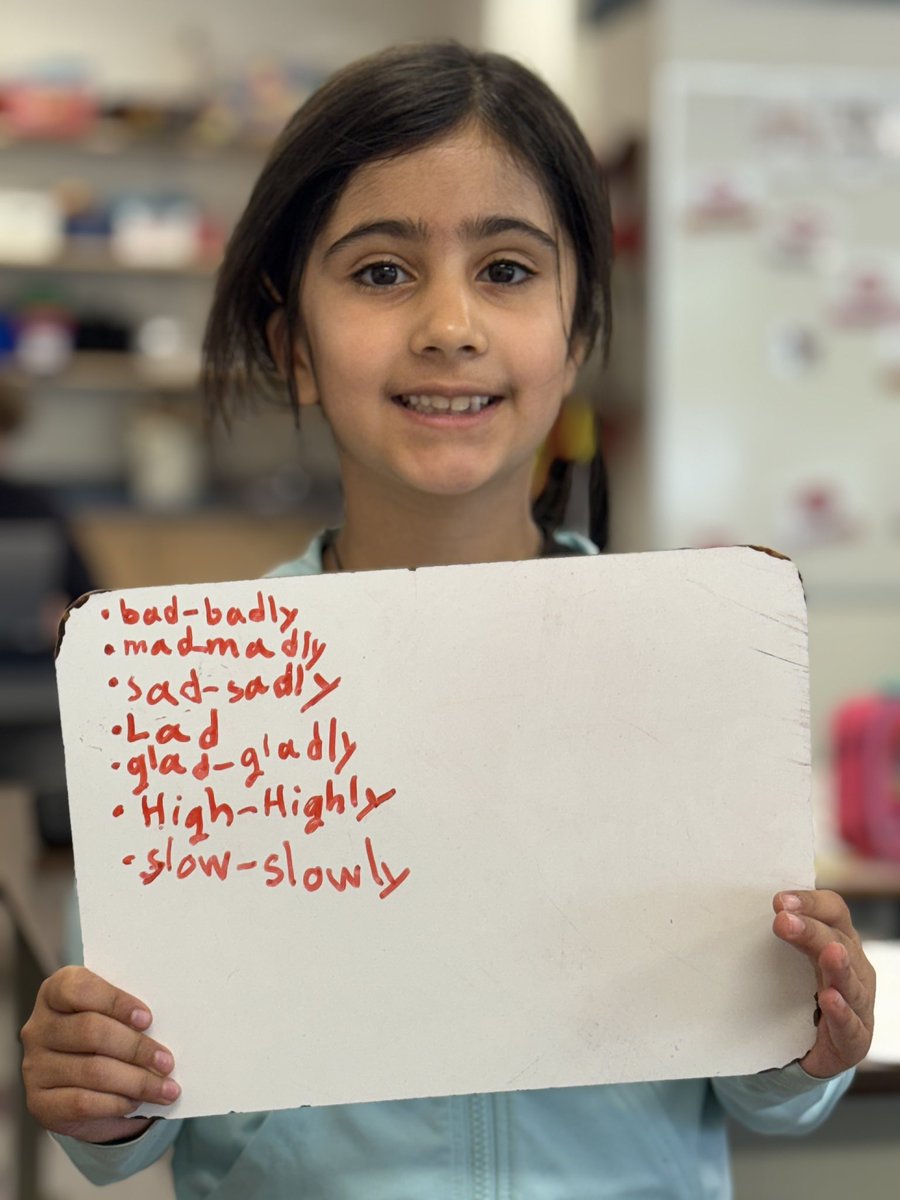 • bad-badly
• mad-madly
• sad-sadly
• Lad
• glad-gladly
• High-Highly
• slow-slowly